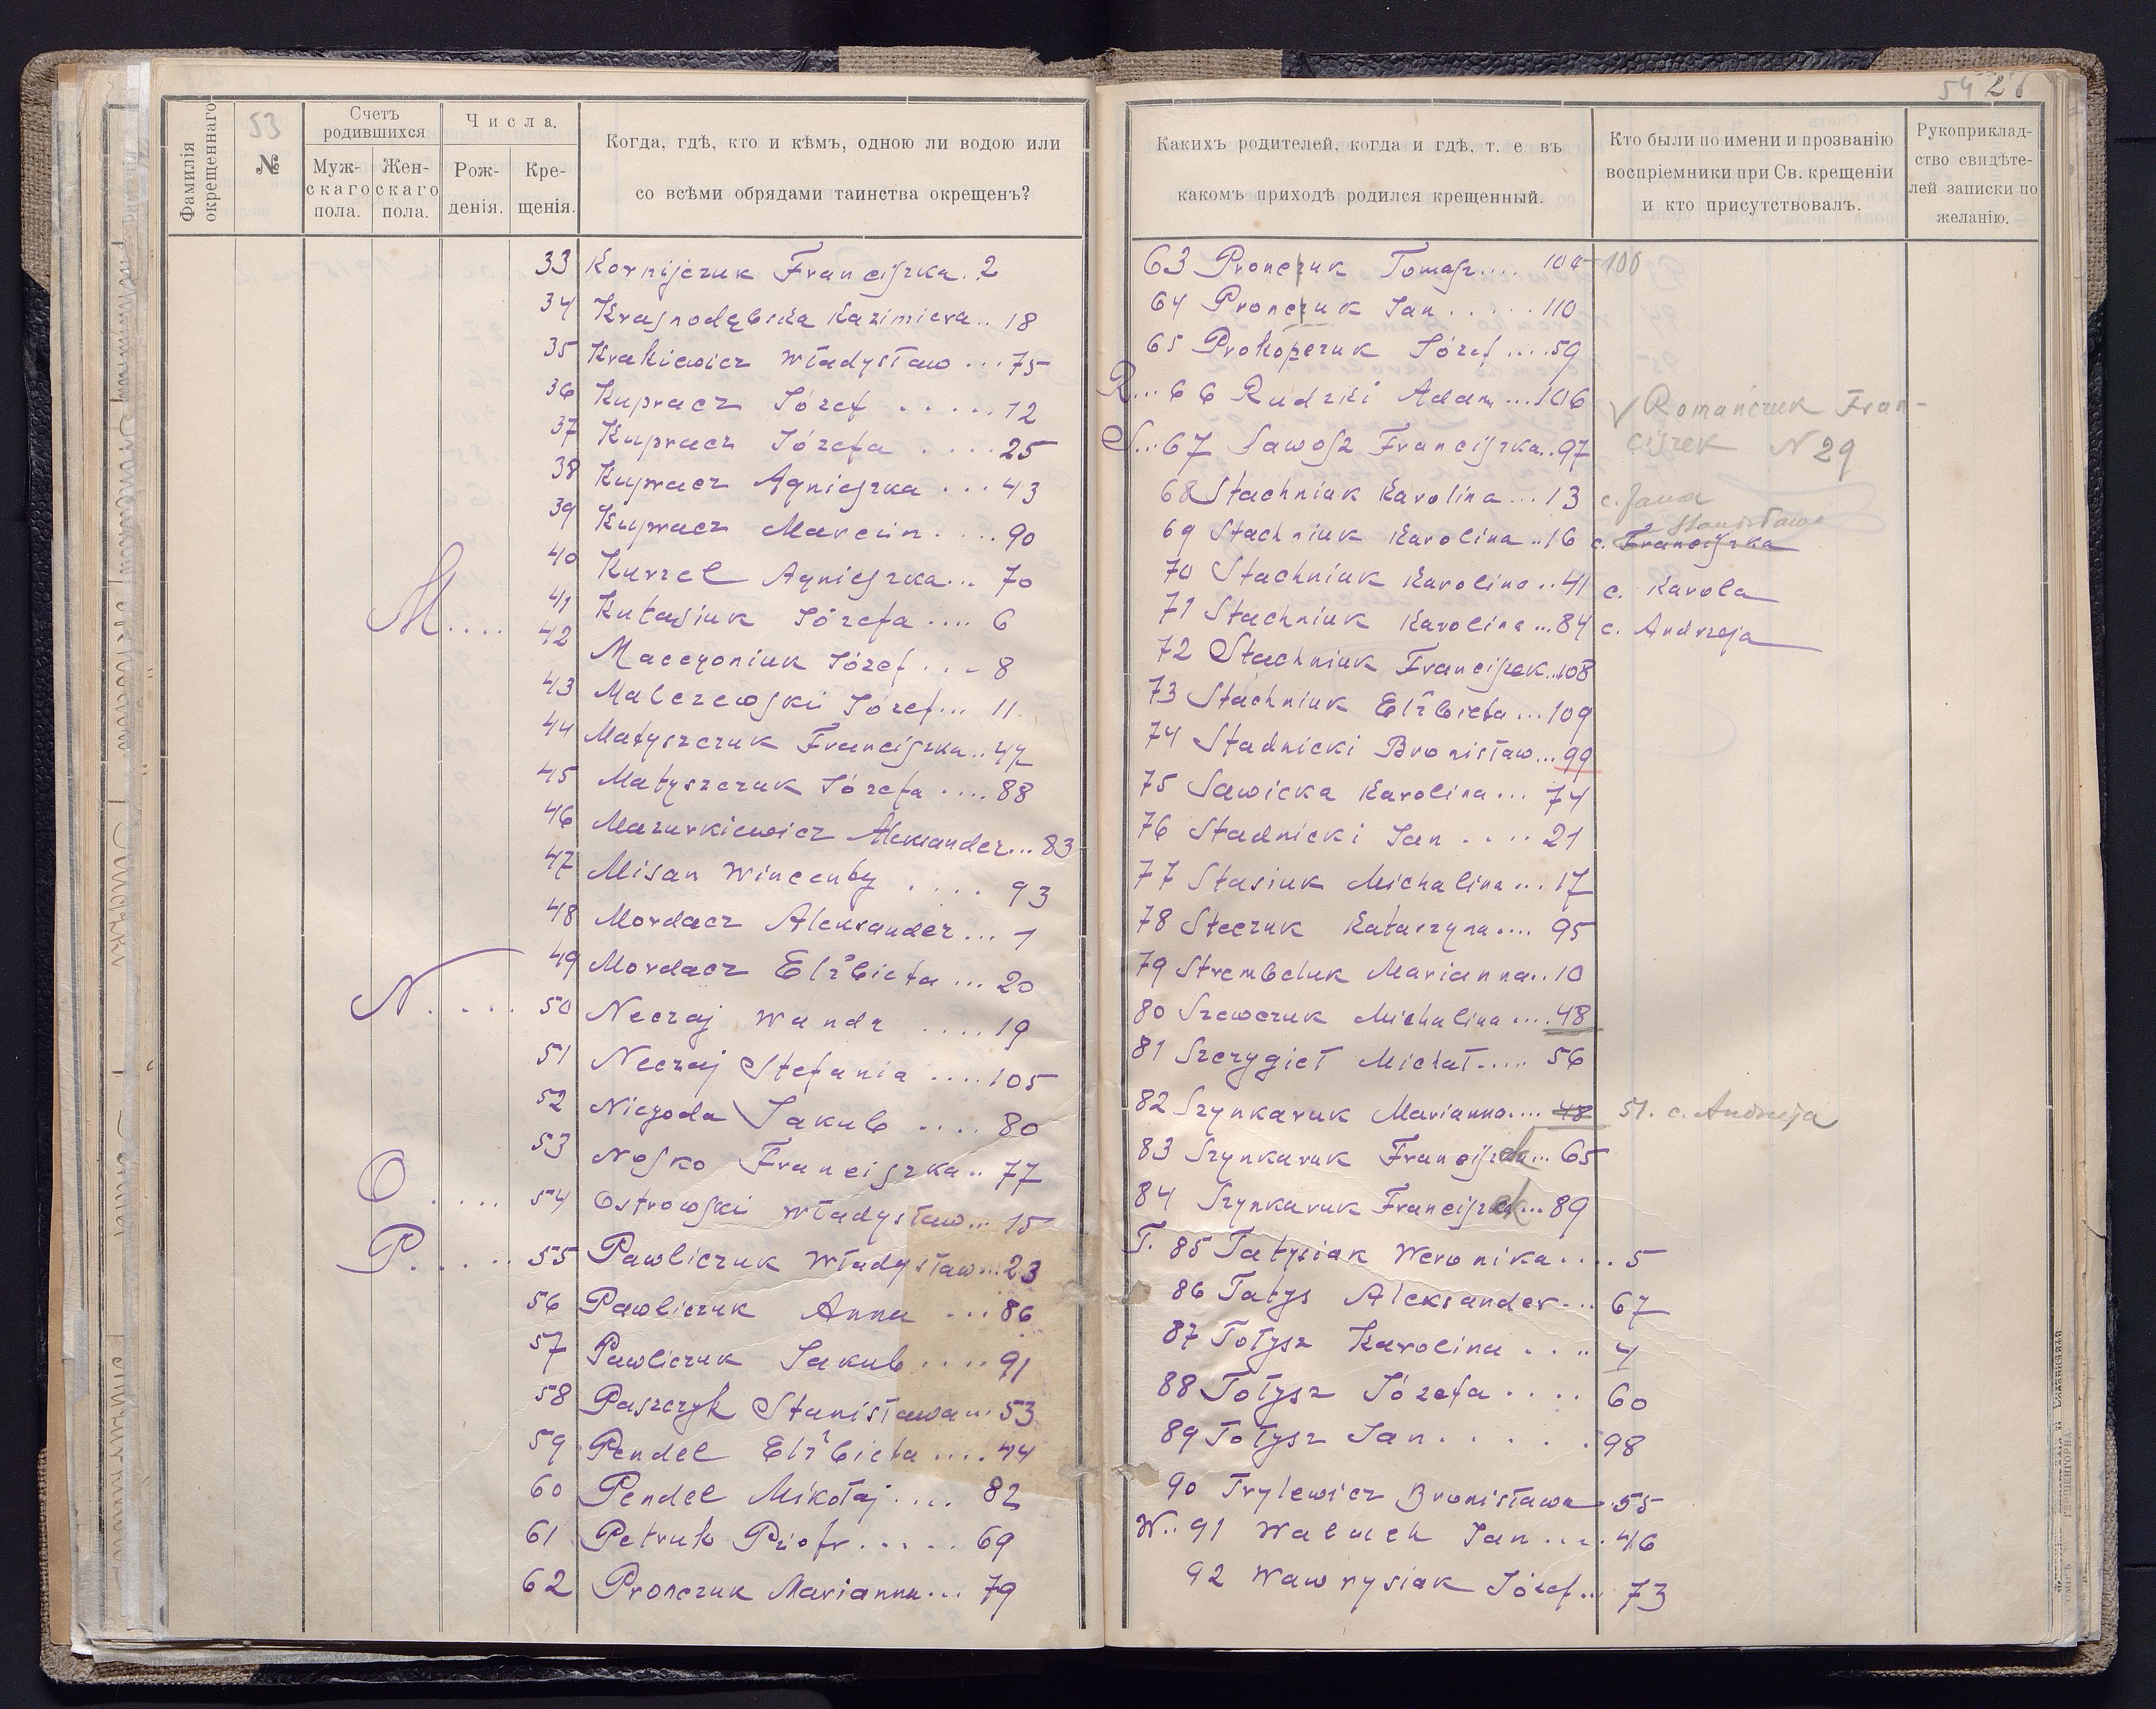 Фамилія окрещеннаго
53
№
Счетъ родившихся
Мужскаго пола.
Женскаго пола.
Числа.
Рожденія.
Крещенія.
Когда, гдѣ, кто и кѣмъ, одною ли водою или
со всѣми обрядами таинства окрещенъ?
33 Kornijczuk Franciszka. 2
34 Krasnodębska Kazimiera.. 18
35 Krakiewicz Władysław ... 75
36 Kupracz Józef ..... 12
37 Kupracz Józefa .... 25
38 Kupracz Agnieszka ... 43
39 Kupracz Marcin .... 90
40 Kurzel Agnieszka... 70
41 Kutasiuk Józefa .... 6
M.... 42 Maceyoniuk Józef ... 8
43 Malczewski Józef... 11
44 Matyszczuk Franciszka.. 42
45 Matyszczuk Józefa .... 88
46 Mazurkiewicz Aleksander... 83
47 Misan Wincenty .... 93
48 Mordacz Aleksander ... 1
49 Mordacz Elżbieta ... 20
N..... 50 Neczaj Wanda .... 19
51 Neczaj Stefania .... 105
52 Niegoda Jakub .... 80
53 Nosko Franciszka.. 77
O..... 54 Ostrowski Władysław... 15
P..... 55 Pawliczuk Władysław... 23
56 Pawliczuk Anna ... 86
57 Pawliczuk Jakub .... 91
58 Paszczyk Stanisława... 53
59 Pendel Elżbieta .... 44
60 Pendel Mikołaj .... 82
61 Petruk Piotr ..... 69
62 Pronczuk Marianna... 79
54 26
Какихъ родителей, когда и гдѣ, т. е. въ
какомъ приходѣ родился крещенный.
Кто были по имени и прозванію
воспріемники при Св. крещеніи
и кто присутствовалъ.
Рукоприкладство свидѣтелей записки по желанію.
63 Pronczuk Tomasz.... 104 100
64 Pronczuk Jan ..... 110
65 Prokopczuk Józef .... 59
R... 66 Rudzki Adam ... 106
V Romańczuk Franciszek N 29
S... 67 Sawosz Franciszka.. 97
68 Stachniuk Karolina ... 13 c. Jana
Stanisława
69 Stachniuk Karolina .. 16 c. Franciszka
70 Stachniuk Karolina .. 41 c. Karola
71 Stachniuk Karolina ... 84 c. Andrzeja
72 Stachniuk Franciszek.. 108
73 Stachniuk Elżbieta ... 109
74 Stadnicki Bronisław... 99
75 Sawicka Karolina... 74
76 Stadnicki Jan .... 21
77 Stasiuk Michalina ... 17
78 Steczuk Katarzyna.... 95
79 Strembeluk Marianna.. 10
80 Szewczuk Michalina .... 48
81 Szczygieł Michał..... 56
82 Szynkaruk Marianna.... 48 51. c. Andrzeja
83 Szynkaruk Franciszek... 65
84 Szynkaruk Franciszek... 89
T. 85 Tatysiak Weronika .... 5
86 Tatys Aleksander... 67
87 Tołysz Karolina .... 4
88 Tołysz Józefa .... 60
89 Tołysz Jan ...... 98
90 Trylewicz Bronisława.. 55
W.. 91 Waluch Jan .... 46
92 Wawrysiak Józef... 73